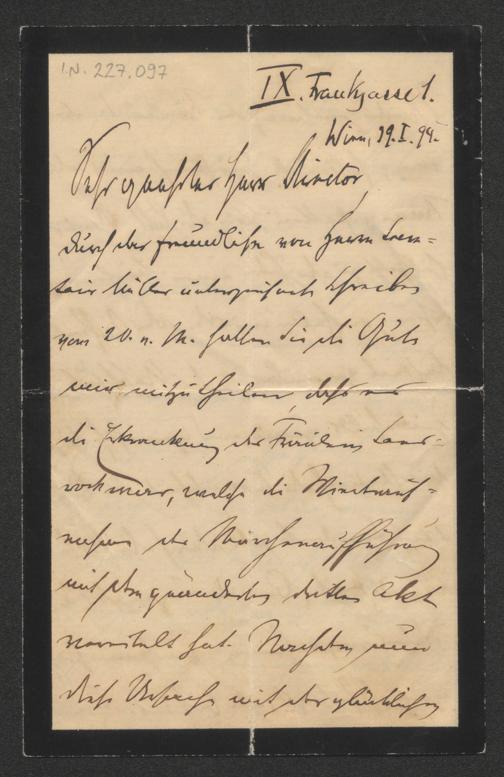 I.N. 227.097
IX. Frankgasse 1.
Wien, 19.I.94.
Sehr geehrter Herr Director,
durch das freundliche von Herrn Secre-
tair Müller unterzeichnete Schreiben
vom 20. v. M. hatten Sie die Güte
mir mitzutheilen, dass nur
die Erkrankung des Fräulein Sand-
rock
welche die Wiederauf-
nahme des Märchenaufführung
mit dem geänderten dritten Akt
vereitelt hat. Nachdem nun
diese Ursache mit der glücklichen